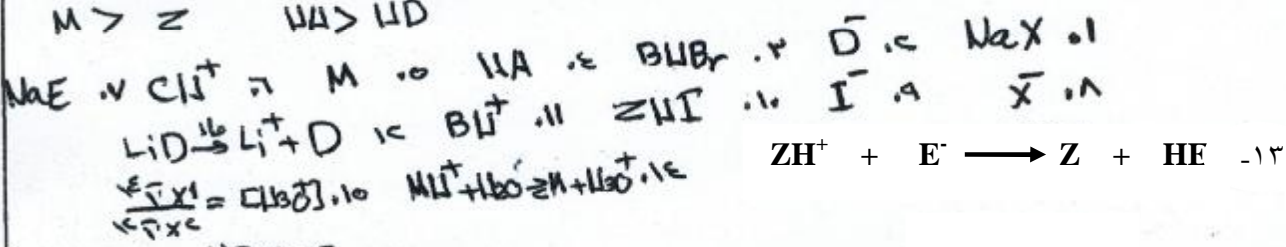 M > Z    HA > HD
١. NaX    ٢. D⁻    ٣. BHBr    ٤. HA    ٥. M    ٦. CH⁺    ٧. NaE
٨. X⁻    ٩. I⁻    ١٠. ZHI    ١١. BH⁺    ١٢. LiD → Li⁺ + D
١٣- ZH⁺ + E⁻ → Z + HE
١٤. MH⁺ + H₂O ⇌ M + H₃O⁺    ١٥. [H₃O⁺] =